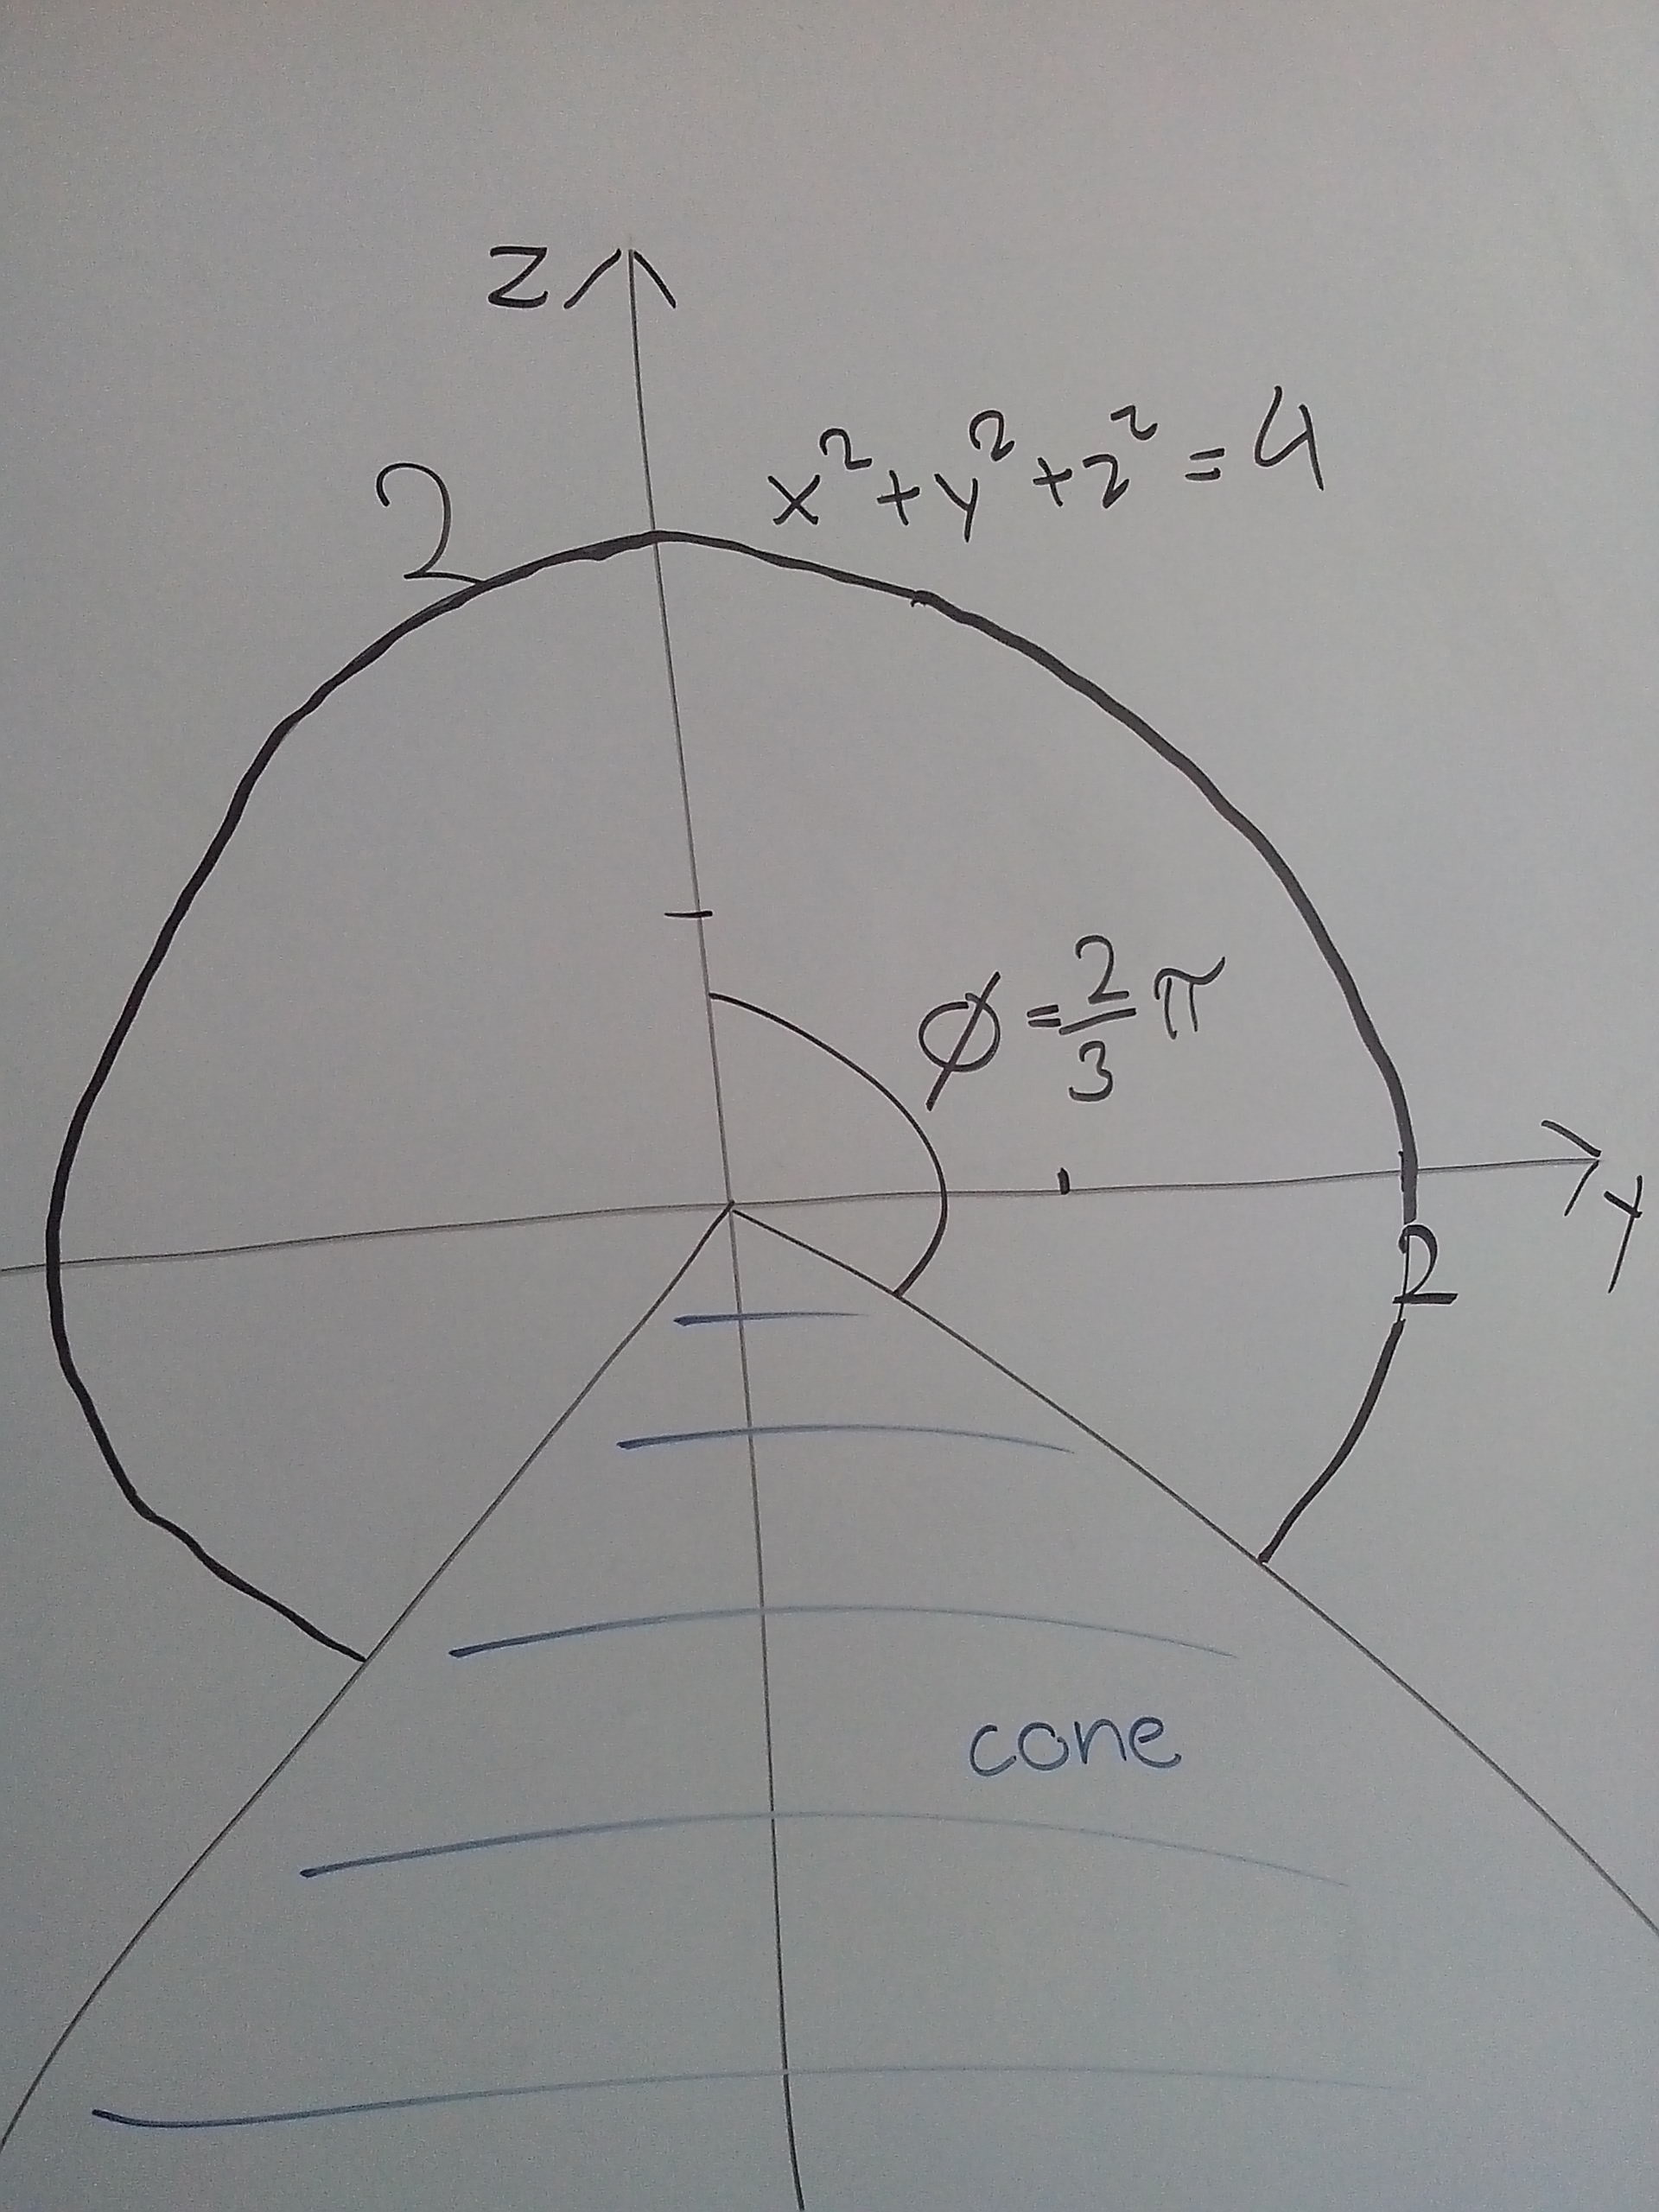 z
x²+y²+z²=4
2
φ=2/3 π
y
2
cone